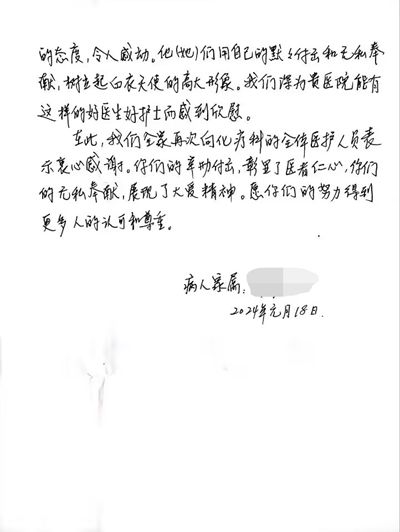 的态度，令人感动。他(她)们用自己的默默付出和无私奉
献，树立起白衣天使的高大形象。我们深为贵医院能有
这样的好医生好护士而感到欣慰。
在此，我们全家再次向化疗科的全体医护人员表
示衷心感谢。你们的辛勤付出，彰显了医者仁心，你们
的无私奉献，展现了大爱精神。愿你们的努力得到
更多人的认可和尊重。
病人家属：
2024年元月18日.